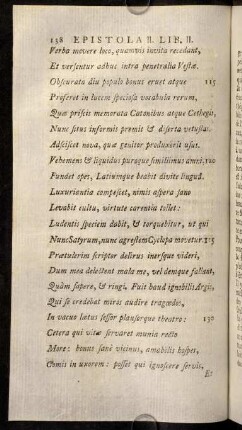 138 EPISTOLA II. LIB. II.
Verba movere loco, quamvis invita recedant,
Et versentur adhuc intra penetralia Vestæ.
Obscurata diu populo bonus eruet atque 115
Proferet in lucem speciosa vocabula rerum,
Quæ priscis memorata Catonibus atque Cethegis,
Nunc situs informis premit & deserta vetustas:
Adsciscet nova, quæ genitor produxerit usus.
Vehemens & liquidus puroque simillimus amni, 120
Fundet opes, Latiumque beabit divite linguâ.
Luxuriantia compescet, nimis aspera sano
Levabit cultu, virtute carentia tollet:
Ludentis speciem dabit, & torquebitur, ut qui
Nunc Satyrum, nunc agrestem Cyclopa movetur. 125
Prætulerim scriptor delirus inersque videri,
Dum mea delectent mala me, vel denique fallant,
Quàm sapere, & ringi. Fuit haud ignobilis Argis,
Qui se credebat miros audire tragœdos,
In vacuo lætus sessor plausorque theatro: 130
Cetera qui vitæ servaret munia recto
More: bonus sanè vicinus, amabilis hospes,
Comis in uxorem: posset qui ignoscere servis,
Et